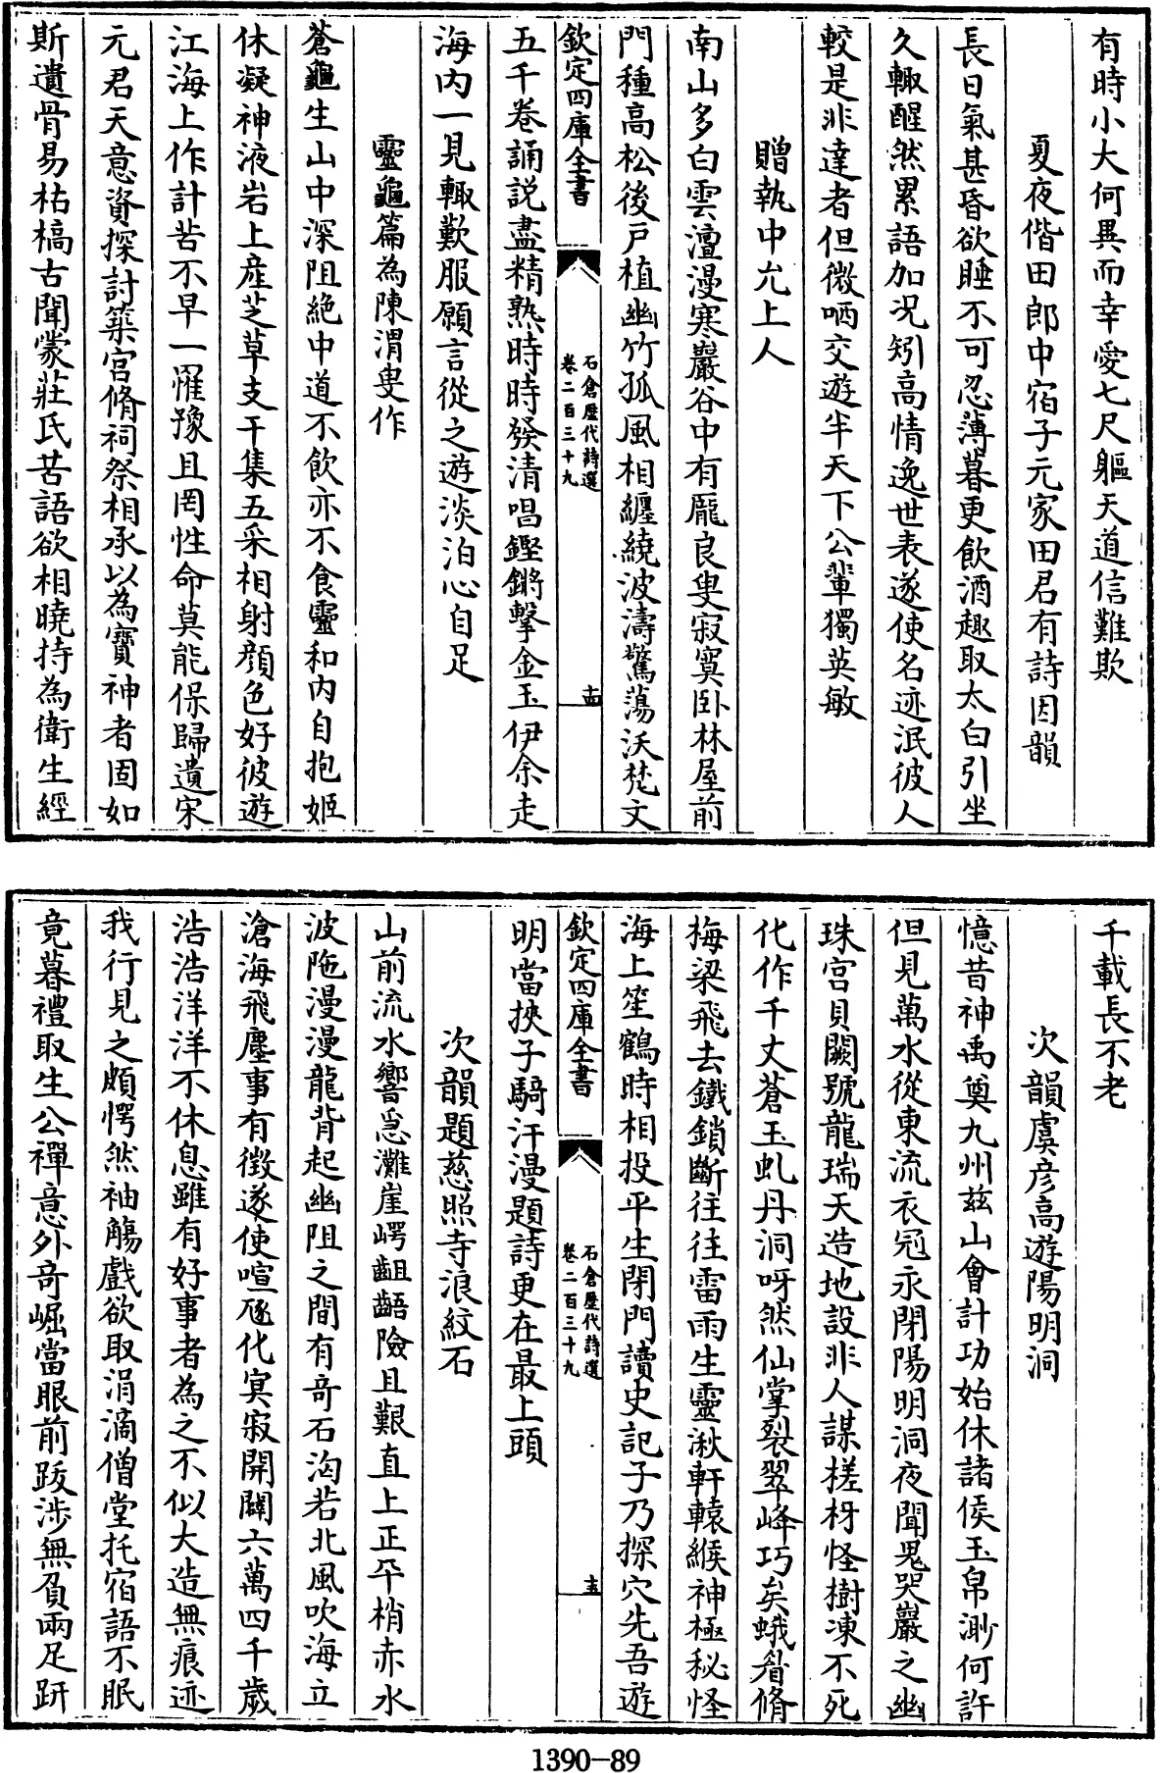 有時小大何異而幸愛七尺軀天道信難欺
夏夜偕田郎中宿子元家田君有詩因韻
長日氣甚昏欲睡不可忍薄暮更飲酒趣取太白引坐
久輙醒然累語加况矧高情逸世表遂使名迹泯彼人
較是非達者但微哂交遊半天下公輩獨英敏
贈執中允上人
南山多白雲澶漫寒巖谷中有厖良叟寂寞卧林屋前
門種高松後戸植幽竹孤風相纒繞波濤驚蕩沃梵文
欽定四庫全書
石倉歴代詩選
卷二百三十九
十四
五千卷誦説盡精熟時時發清唱鏗鏘擊金玉伊余走
海内一見輙歎服願言從之遊淡泊心自足
靈龜篇為陳渭叟作
蒼龜生山中深阻絶中道不飲亦不食靈和内自抱姬
休凝神液岩上産芝草支干集五采相射顔色好彼遊
江海上作計苦不早一罹豫且罔性命莫能保歸遺宋
元君天意資探討築宫脩祠祭相承以為寳神者固如
斯遺骨易枯槁古聞蒙莊氏苦語欲相曉持為衛生經
千載長不老
次韻虞彦高遊陽明洞
憶昔神禹奠九州兹山會計功始休諸侯玉帛渺何許
但見萬水從東流衣冠永閉陽明洞夜聞鬼哭巖之幽
珠宫貝闕號龍瑞天造地設非人謀槎枒怪樹凍不死
化作千丈蒼玉虬丹洞呀然仙掌裂翠峰巧矣蛾眉脩
梅梁飛去鐵鎖斷往往雷雨生靈湫軒轅緱神極秘怪
海上笙鶴時相投平生閉門讀史記子乃探穴先吾遊
欽定四庫全書
石倉歴代詩選
卷二百三十九
十五
明當挾子騎汗漫題詩更在最上頭
次韻題慈照寺浪紋石
山前流水響怱灘崖崿齟齬險且艱直上正平梢赤水
波陁漫漫龍背起幽阻之間有奇石洶若北風吹海立
滄海飛塵事有徴遂使喧豗化寞寂開闢六萬四千歲
浩浩洋洋不休息雖有好事者為之不似大造無痕迹
我行見之頗愕然袖觴戲欲取涓滴僧堂托宿語不眠
竟暮禮取生公禪意外奇崛當眼前跋涉無負兩足趼
1390-89